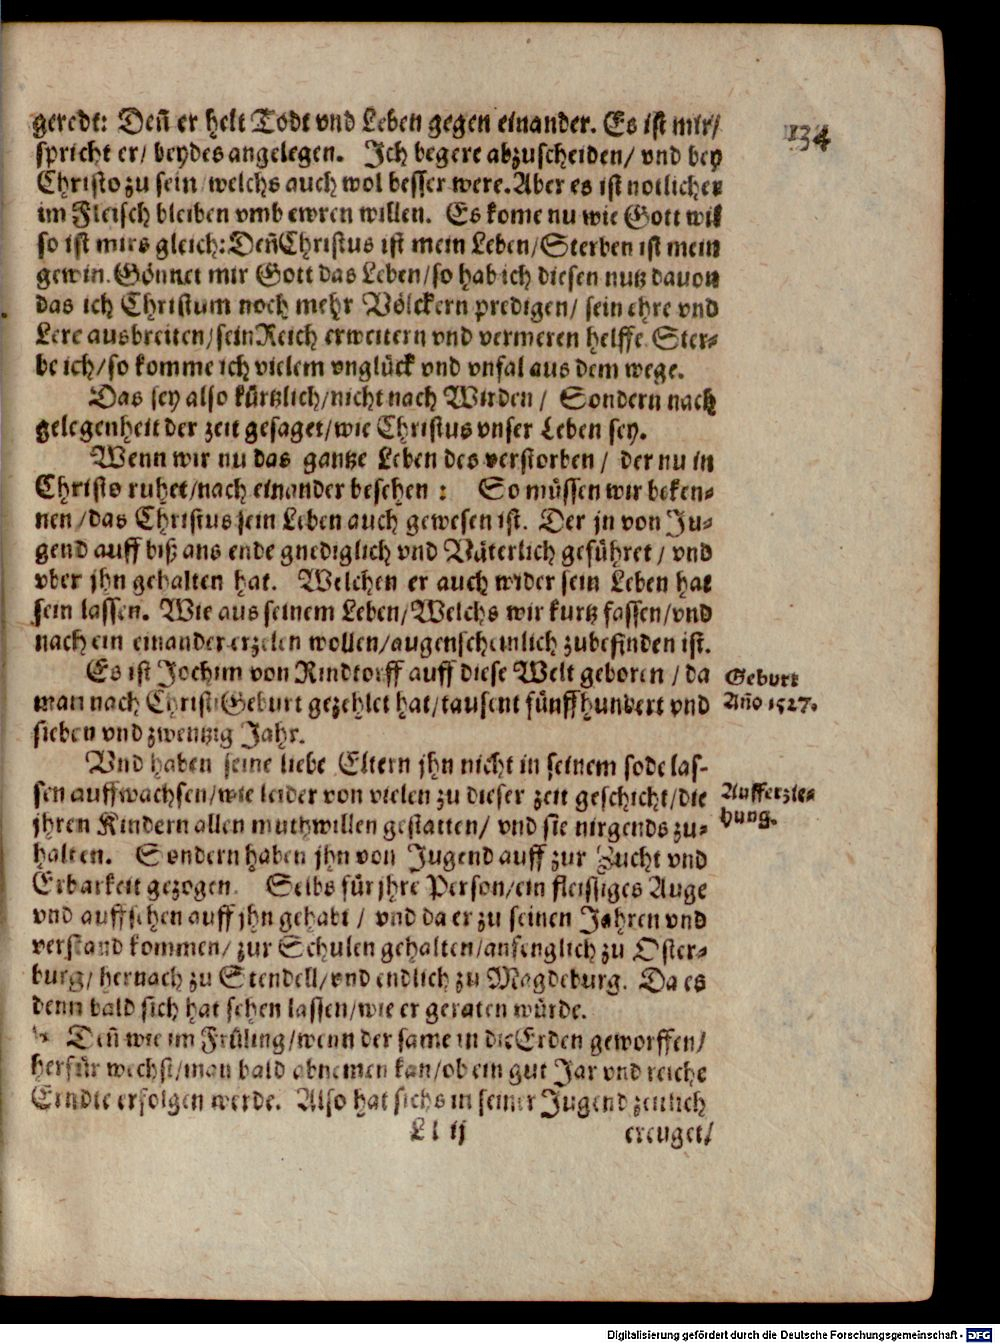 134
geredt: Deñ er helt Todt vnd Leben gegen einander. Es ist mir/
spricht er/ beydes angelegen. Ich begere abzuscheiden/ vnd bey
Christo zu sein welchs auch wol besser were. Aber es ist notlicher
im Fleisch bleiben vmb ewren willen. Es kome nu wie Gott wil
so ist mirs gleich: Deñ Christus ist mein Leben/ Sterben ist mein
gewin. Gönnet mir Gott das Leben/ so hab ich diesen nutz dauon
das ich Christum noch mehr Völckern predigen/ sein ehre vnd
Lere ausbreiten/ sein Reich erweitern vnd vermeren helffe. Ster-
be ich/ so komme ich vielem vnglück vnd vnfal aus dem wege.
Das sey also kürtzlich/ nicht nach Wirden/ Sondern nach
gelegenheit der zeit gesaget/ wie Christus vnser Leben sey.
Wenn wir nu das gantze Leben des verstorben/ der nu in
Christo ruhet/ nach einander besehen: So müssen wir beken-
nen/ das Christus sein Leben auch gewesen ist. Der jn von Ju-
gend auff biß ans ende gnediglich vnd Väterlich geführet/ vnd
vber jhn gehalten hat. Welchen er auch wider sein Leben hat
sein lassen. Wie aus seinem Leben/ Welchs wir kurtz fassen/ vnd
nach ein einander erzelen wollen/ augenscheinlich zubefinden ist.
Es ist Jochim von Rindtorff auff diese Welt geboren/ da
man nach Christi Geburt gezehlet hat/ tausent fünffhundert vnd
sieben vnd zwentzig Jahr.
Geburt
Año 1527.
Vnd haben seine liebe Eltern jhn nicht in seinem sode las-
sen auffwachsen/ wie leider von vielen zu dieser zeit geschicht/ die
jhren Kindern allen muthwillen gestatten/ vnd sie nirgends zu-
halten. Sondern haben jhn von Jugend auff zur Zucht vnd
Erbarkeit gezogen. Selbs für jhre Person/ ein fleissiges Auge
vnd auffsehen auff jhn gehabt/ vnd da er zu seinen Jahren vnd
verstand kommen/ zur Schulen gehalten/ anfenglich zu Oster-
burg/ hernach zu Stendell/ vnd endlich zu Magdeburg. Da es
denn bald sich hat sehen lassen/ wie er geraten würde.
Aufferzie-
hung.
Deñ wie im Früling/ wenn der same in die Erden geworffen/
herfür wechst/ man bald abnemen kan/ ob ein gut Jar vnd reiche
Erndte erfolgen werde. Also hat sichs in seiner Jugend zeitlich
Ll ij
ereuget/
Digitalisierung gefördert durch die Deutsche Forschungsgemeinschaft - DFG